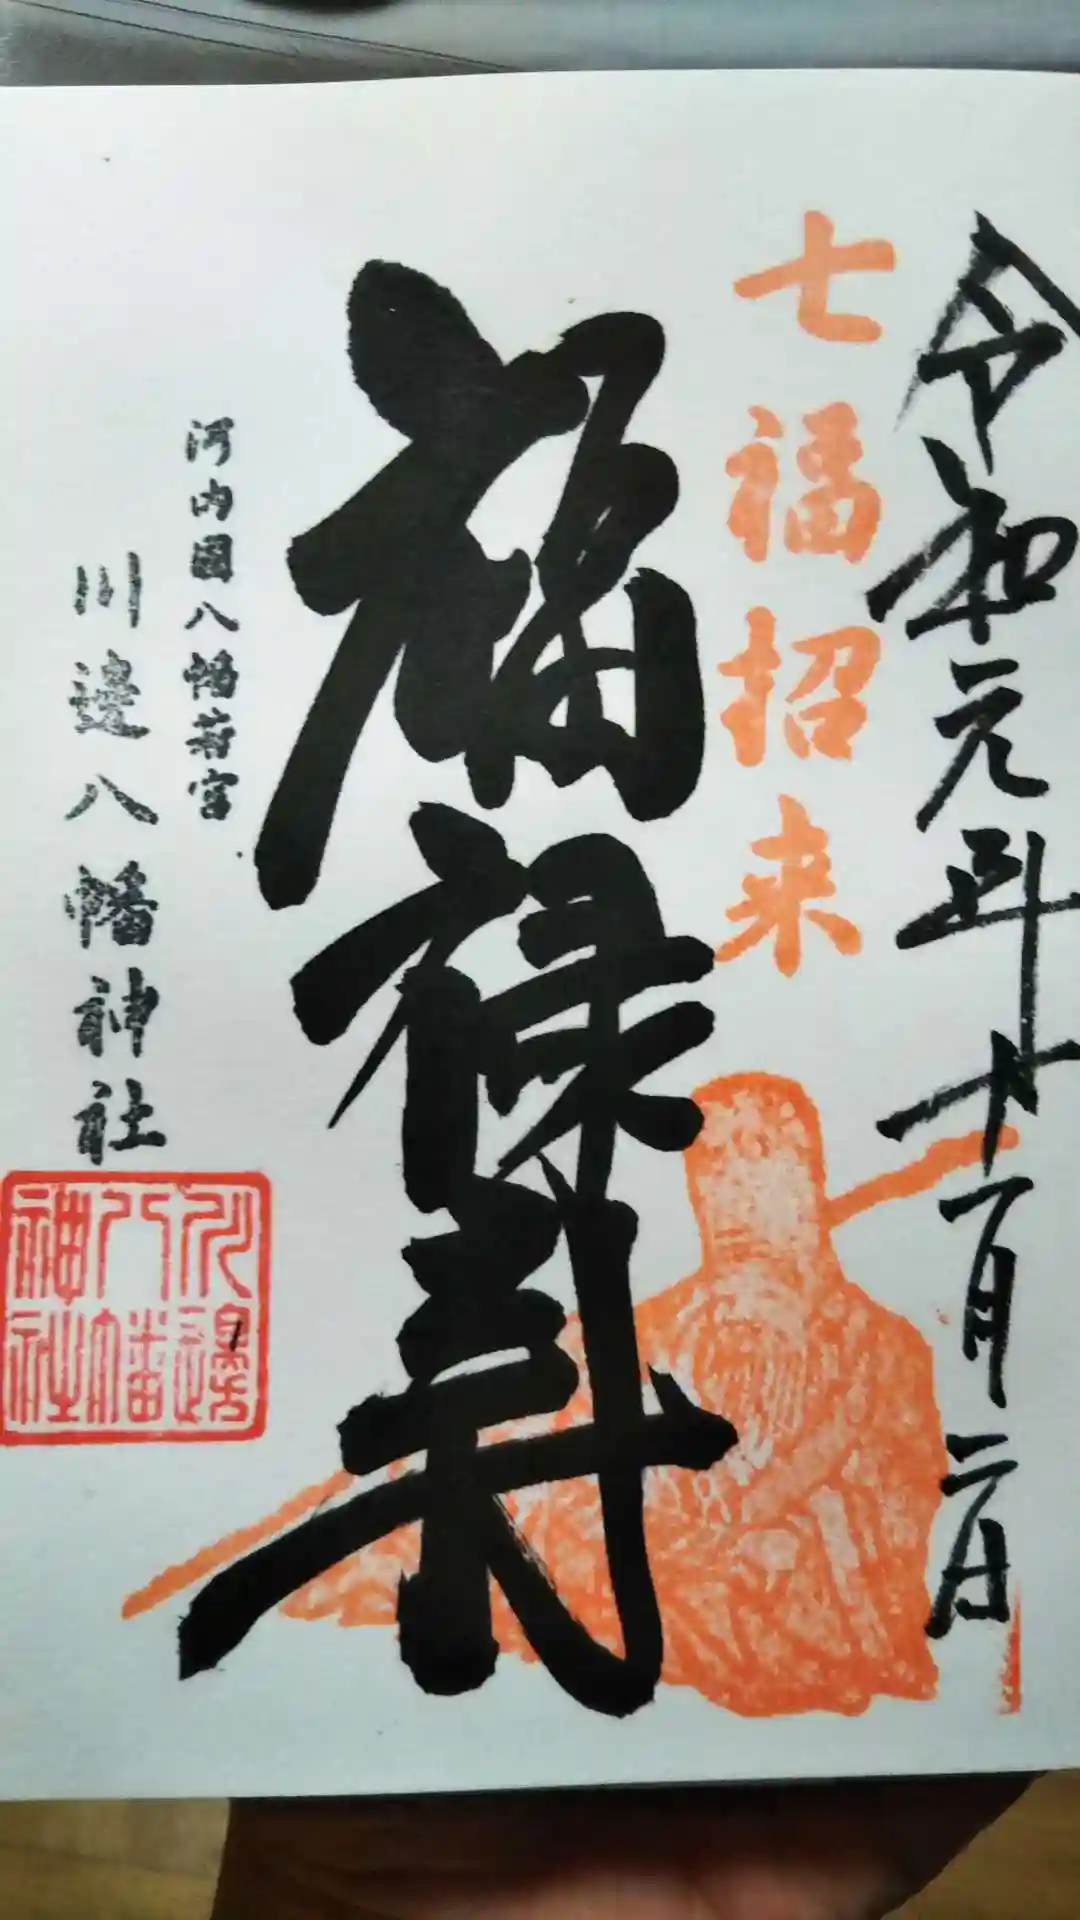 令和元年十一月二日
七福招来
福禄寿
河内國八幡若宮
川邊八幡神社
川邊
八幡
神社